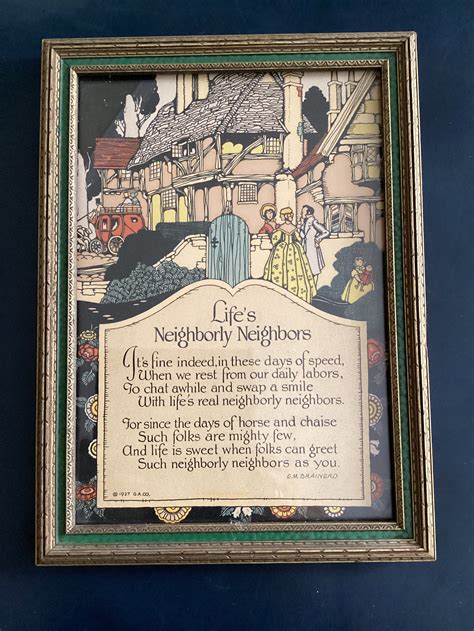 Life's
Neighborly Neighbors
It's fine indeed, in these days of speed,
When we rest from our daily labors,
To chat awhile and swap a smile
With life's real neighborly neighbors.
For since the days of horse and chaise
Such folks are mighty few,
And life is sweet when folks can greet
Such neighborly neighbors as you.
E.M. BRAINERD
© 1927 G.A.CO.